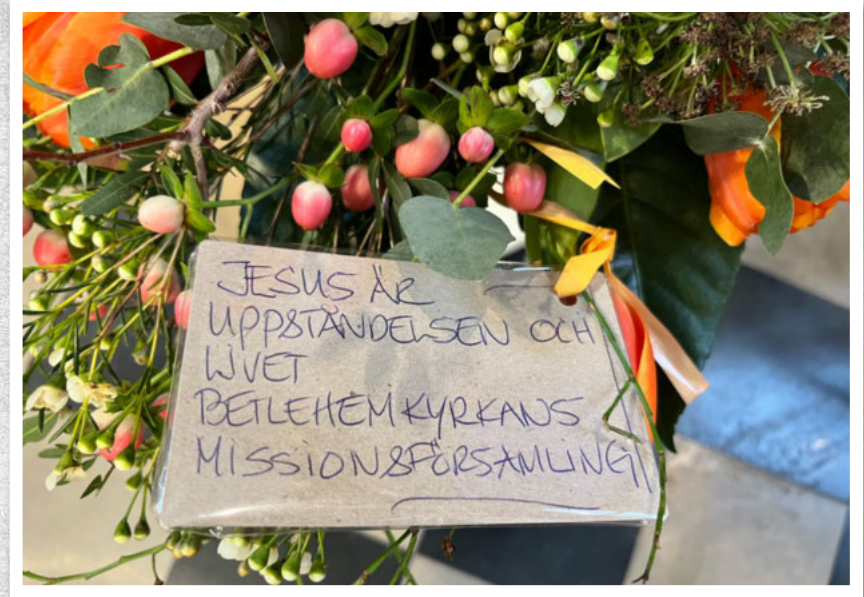 JESUS ÄR
UPPSTÅNDELSEN OCH
LIVET
BETLEHEMKYRKANS
MISSIONSFÖRSAMLING